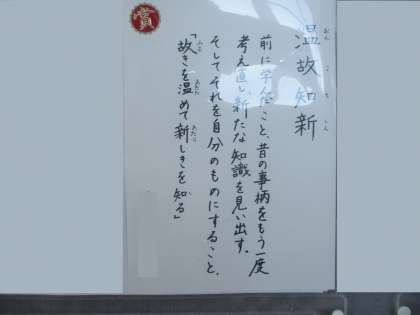 温故知新
おんこちしん
前に学んだこと、昔の事柄をもう一度
考え直し、新たな知識を見い出す。
そしてそれを自分のものにすること。
「故きを温めて新しきを知る」
ふる あたた あたら し
賞